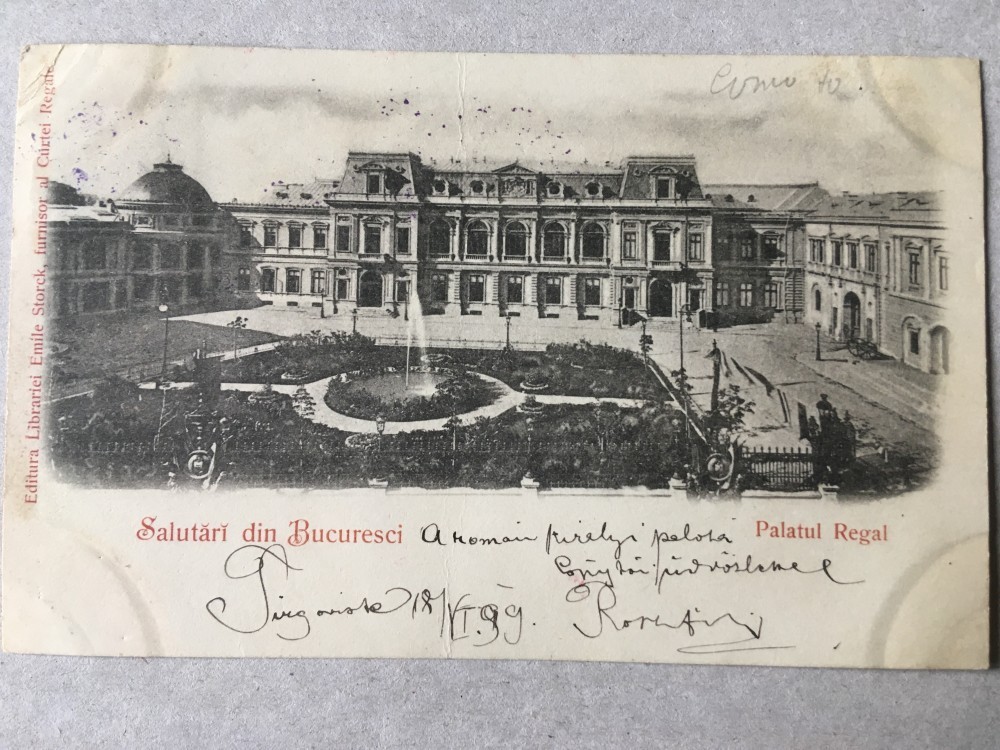 Editura Librariei Emile Storck, furnisor al Curtei Regale
Salutărĭ din Bucuresci
Palatul Regal
A román királyi palota
üdvözlettel
Tirgoviste 18/VI.99.